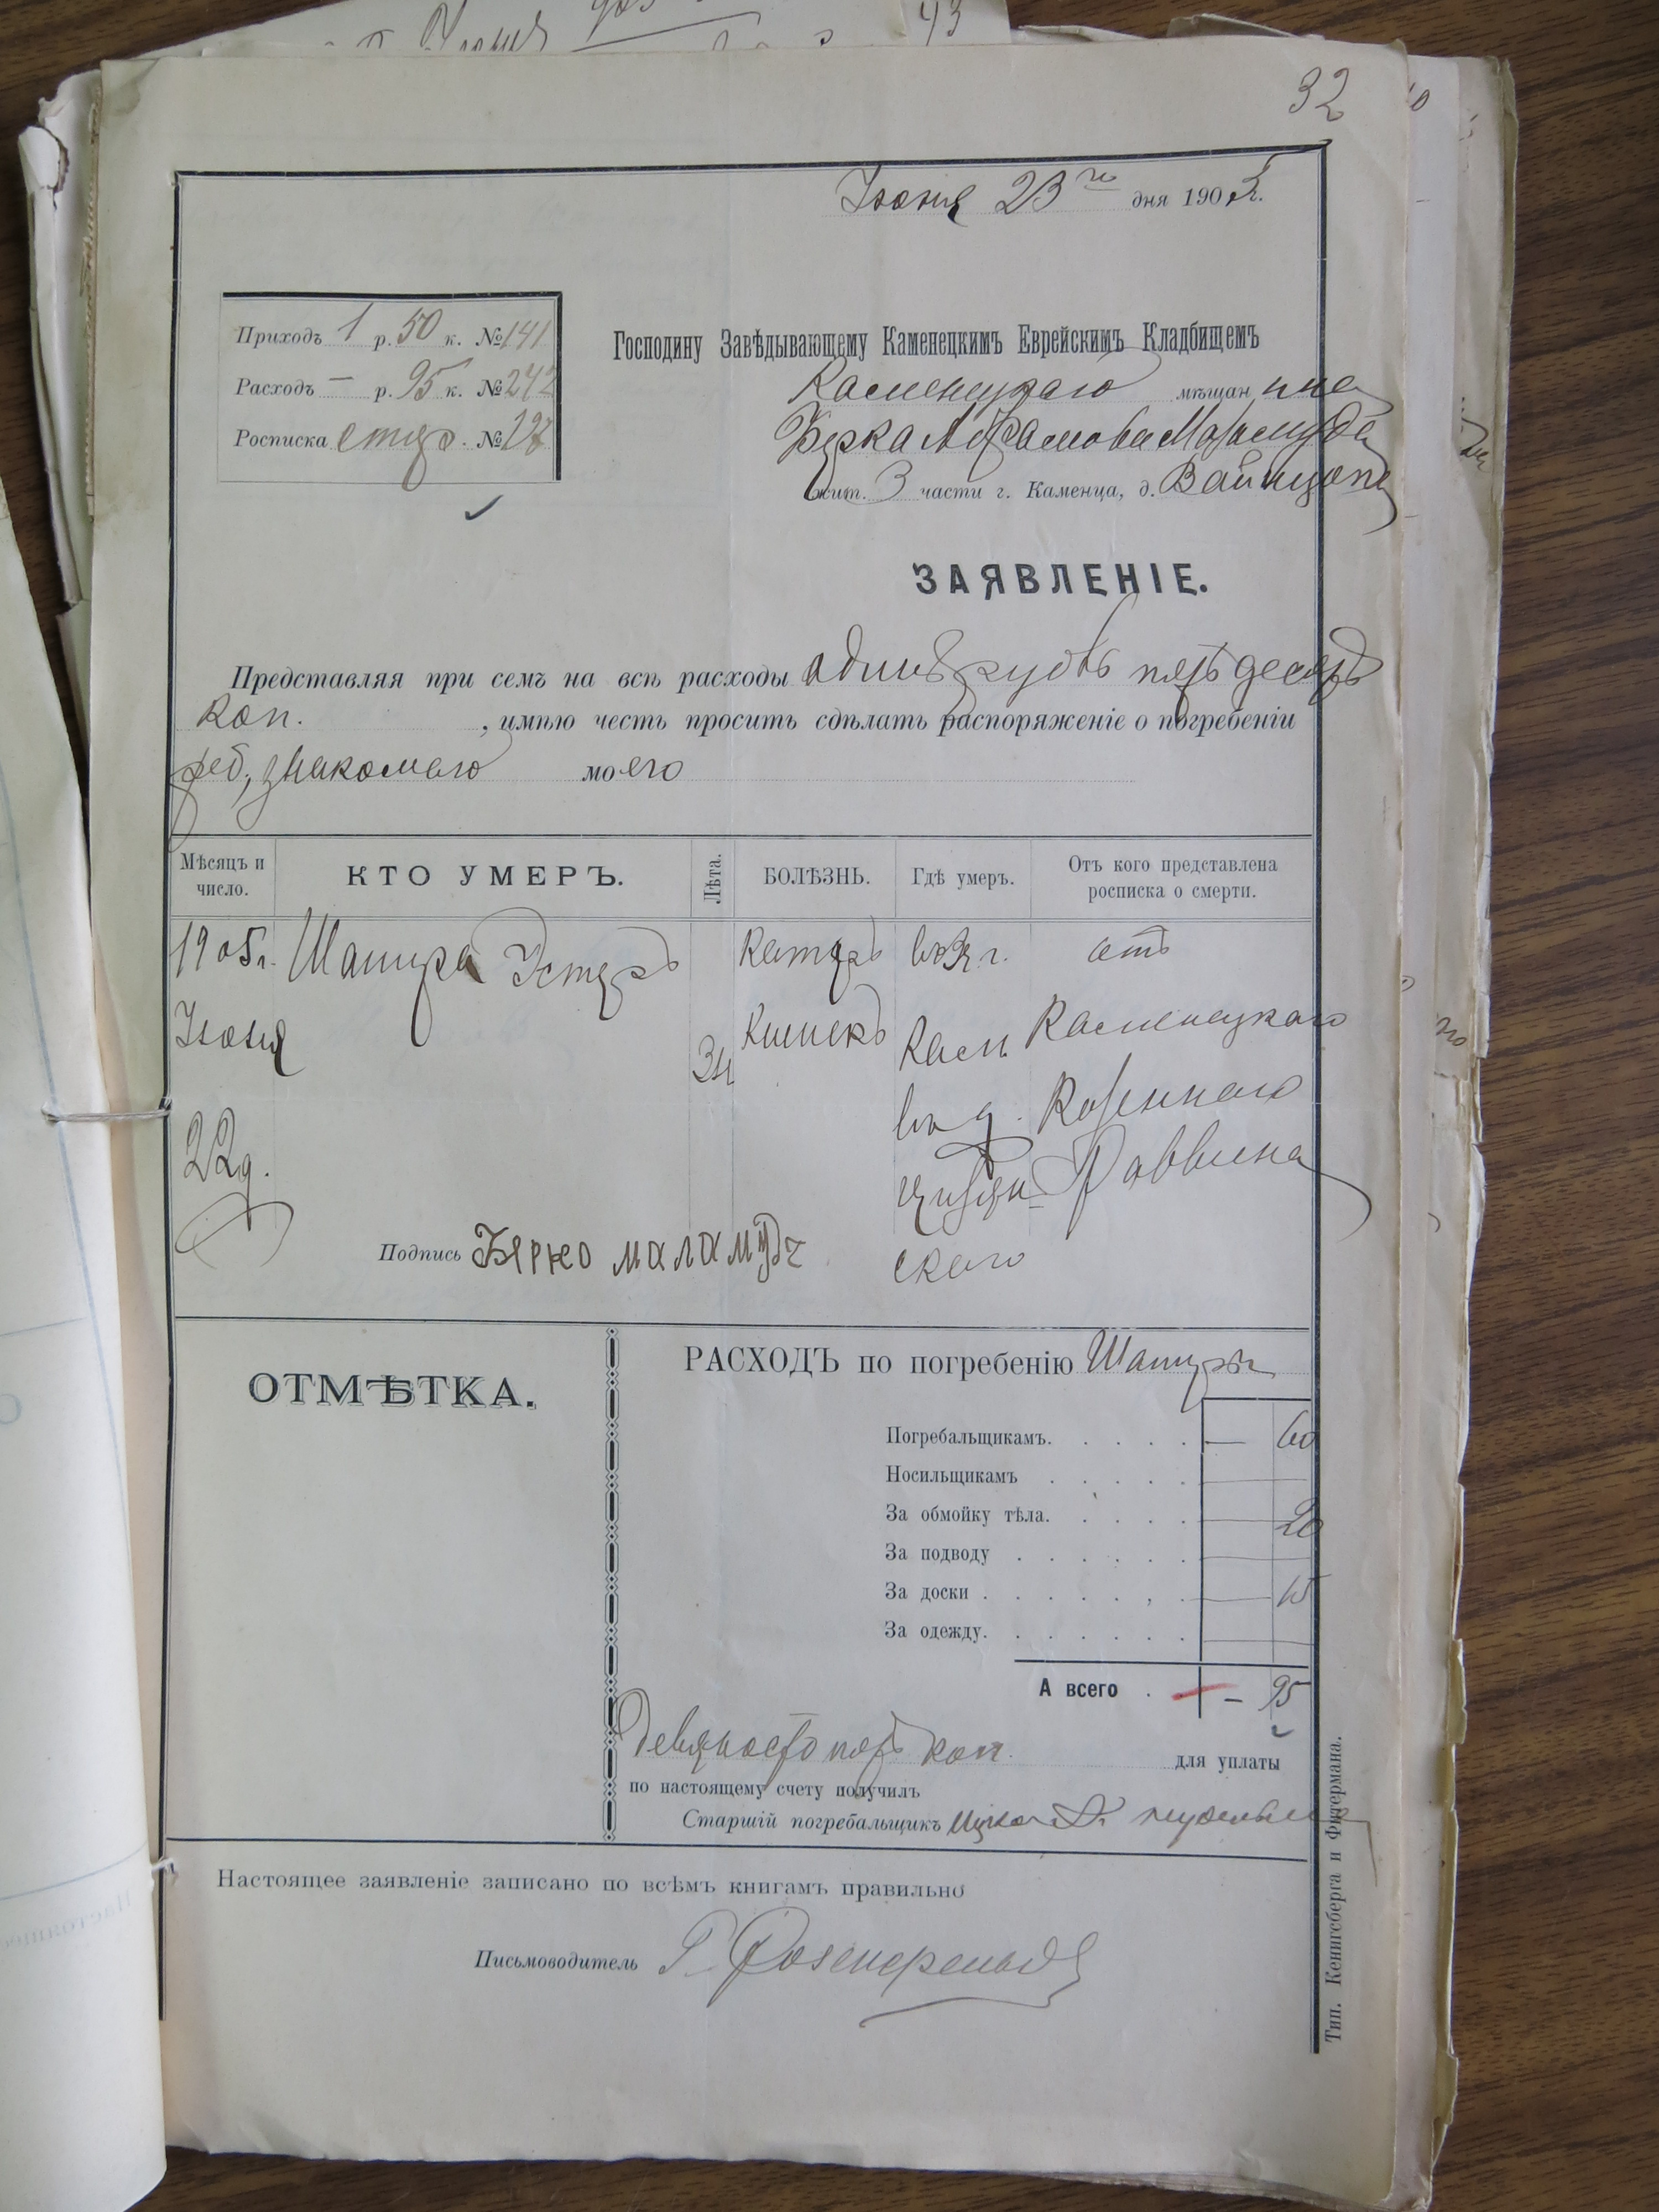 32
Іюня 23го дня 1905 г.
Приходъ 1 р. 50 к. № 141
Расходъ — р. 95 к. № 242
Росписка № 127
Господину Завѣдывающему Каменецкимъ Еврейскимъ Кладбищемъ
Каменецкаго мѣщанина
Берка Абрамова Маламуда
жит. 3 части г. Каменца, д. Вайнцопа
ЗАЯВЛЕНІЕ.
Представляя при семъ на всѣ расходы одинъ рубль пятьдесятъ
коп. , имѣю честь просить сдѣлать распоряженіе о погребеніи
реб. знакомаго моего
Мѣсяцъ и число. КТО УМЕРЪ. Лѣта. БОЛѢЗНЬ. Гдѣ умеръ. Отъ кого представлена росписка о смерти.
1905 г. Шапира Эстеръ Катаръ отъ
Іюня Кишекъ Кам. Каменецкаго
въ д. Казеннаго
22 д. Раввина
Подпись Берко маламудъ скаго
ОТМѢТКА.
РАСХОДЪ по погребенію Шапиры
Погребальщикамъ. — 60
Носильщикамъ
За обмойку тѣла. 20
За подводу
За доски 15
За одежду.
А всего — 95
девяносто пять коп. для уплаты
по настоящему счету получилъ
Старшій погребальщикъ Ицко
Настоящее заявленіе записано по всѣмъ книгамъ правильно
Письмоводитель Г. Розенфельдъ
Тип. Кенигсберга и Фитермана.